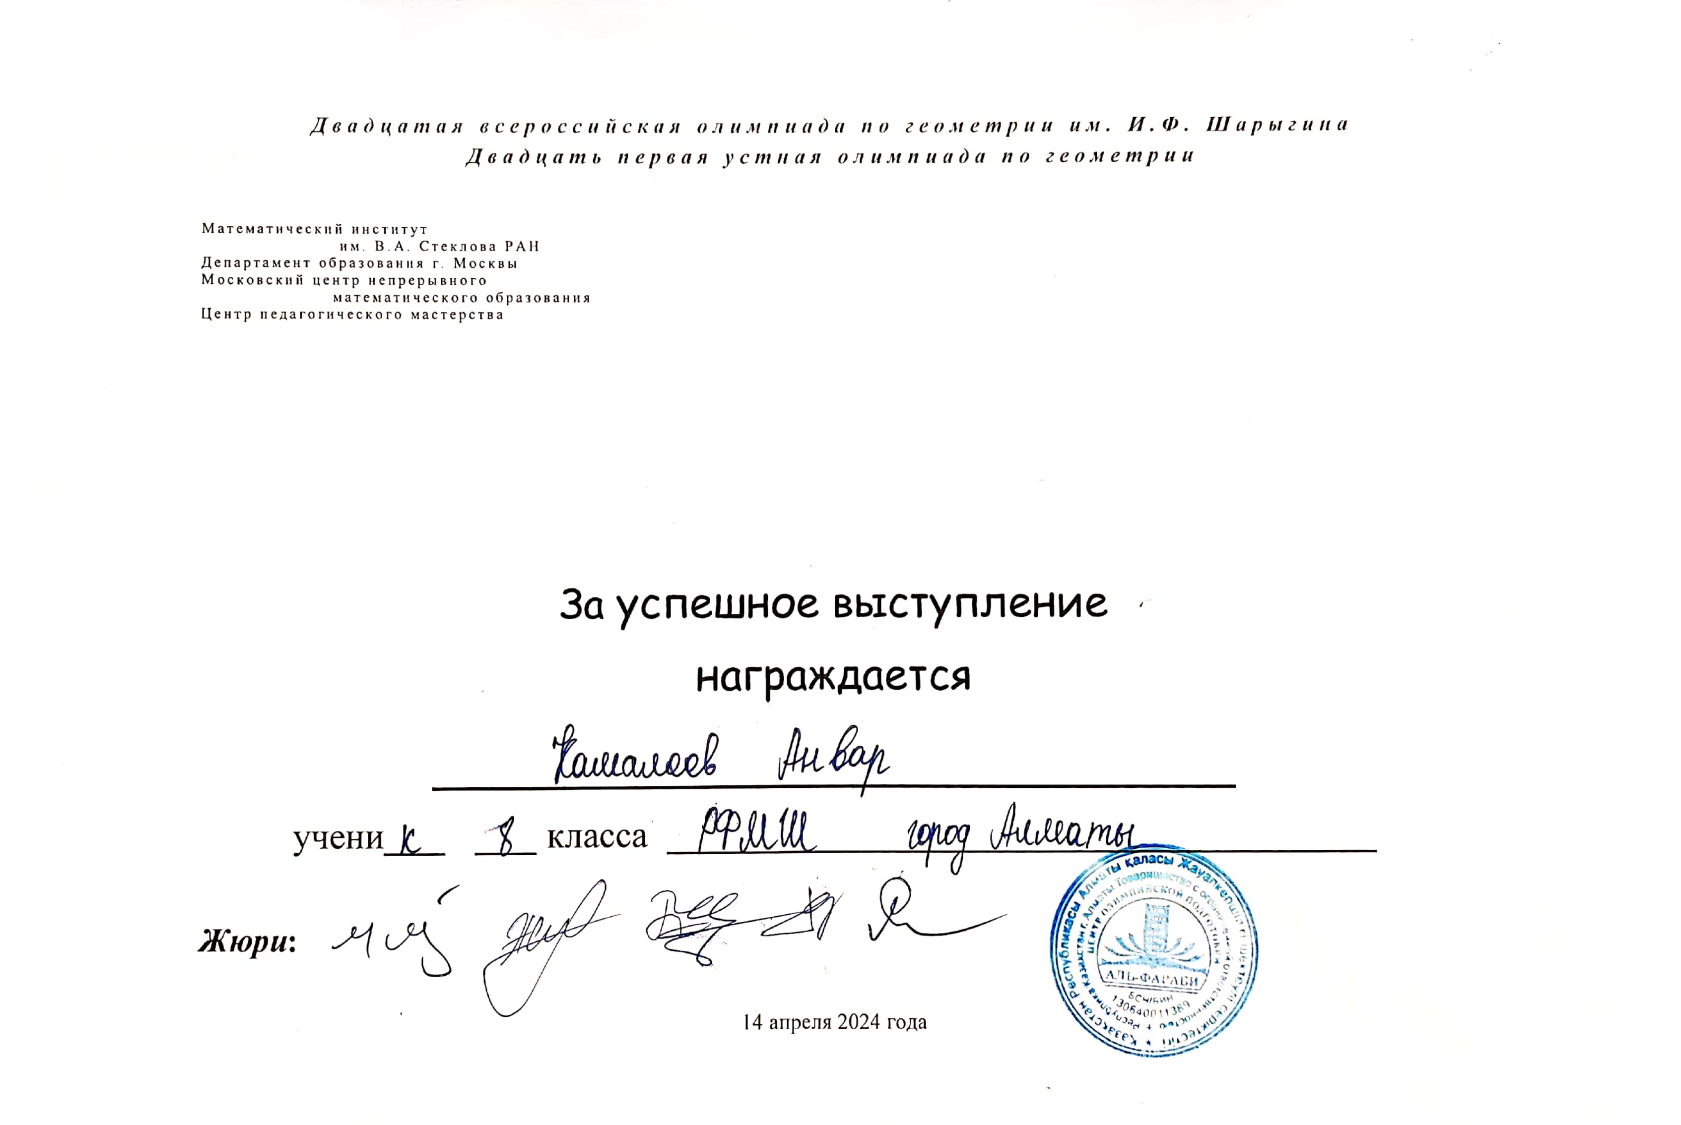 Двадцатая всероссийская олимпиада по геометрии им. И.Ф. Шарыгина
Двадцать первая устная олимпиада по геометрии
Математический институт
им. В.А. Стеклова РАН
Департамент образования г. Москвы
Московский центр непрерывного
математического образования
Центр педагогического мастерства
За успешное выступление
награждается
Камалеев Анвар
ученик 8 класса РФМШ город Алматы
Жюри:
14 апреля 2024 года
Қазақстан Республикасы Алматы қаласы Жауапкершілігі шектеулі серіктестігі
ЦЕНТР ОЛИМПИЙСКОЙ ПОДГОТОВКИ
АЛЬ-ФАРАБИ
130640011389